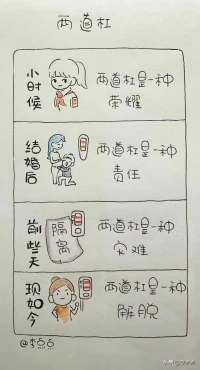 两道杠
小时候
两道杠是一种
荣耀
结婚后
两道杠是一种
责任
前些天
隔离
两道杠是一种
灾难
现如今
两道杠是一种
解脱
@李点点